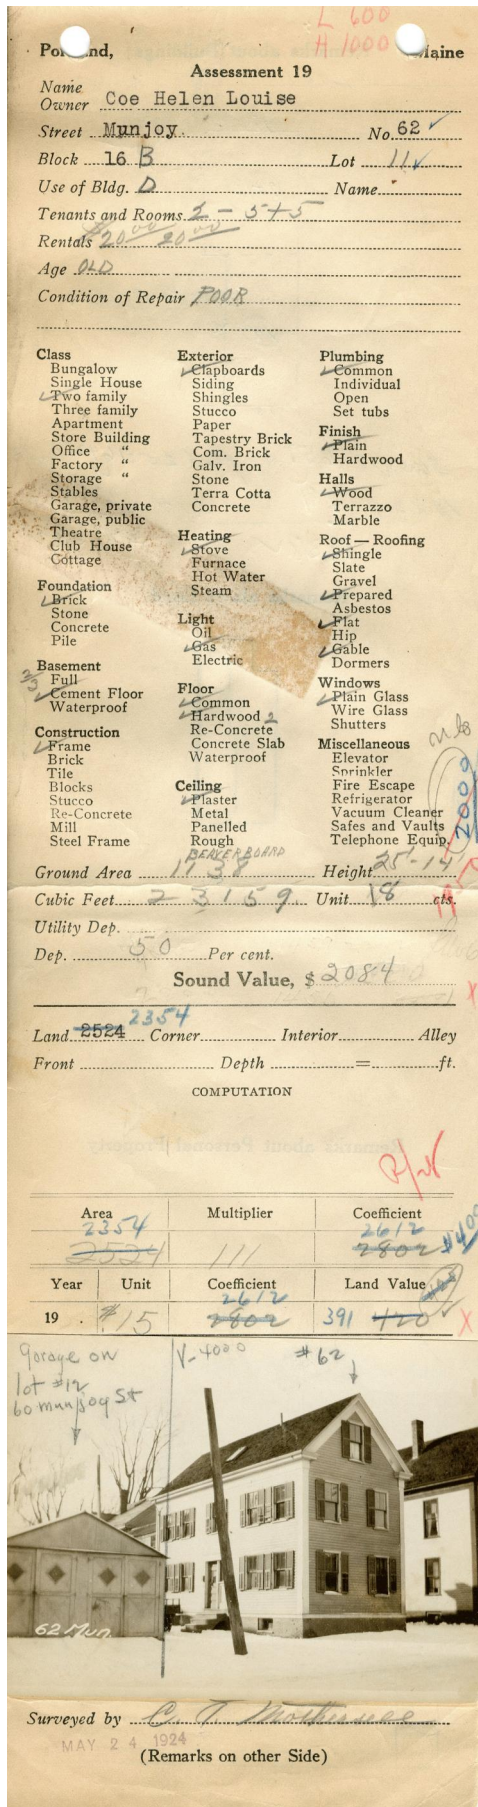 L 600
H 1000
Portland, Maine
Assessment 19
Name
Owner Coe Helen Louise
Street Munjoy. No. 62
Block 16 B Lot 11
Use of Bldg. D Name
Tenants and Rooms 2 - 5+5
Rentals $20.00 20.00
Age OLD
Condition of Repair POOR
Class
Bungalow
Single House
Two family
Three family
Apartment
Store Building
Office "
Factory "
Storage "
Stables
Garage, private
Garage, public
Theatre
Club House
Cottage
Foundation
Brick
Stone
Concrete
Pile
Basement
2/3 Full
Cement Floor
Waterproof
Construction
Frame
Brick
Tile
Blocks
Stucco
Re-Concrete
Mill
Steel Frame
Exterior
Clapboards
Siding
Shingles
Stucco
Paper
Tapestry Brick
Com. Brick
Galv. Iron
Stone
Terra Cotta
Concrete
Heating
Stove
Furnace
Hot Water
Steam
Light
Oil
Gas
Electric
Floor
Common
Hardwood 2
Re-Concrete
Concrete Slab
Waterproof
Ceiling
Plaster
Metal
Panelled
Rough
BEAVERBOARD
Plumbing
Common
Individual
Open
Set tubs
Finish
Plain
Hardwood
Halls
Wood
Terrazzo
Marble
Roof — Roofing
Shingle
Slate
Gravel
Prepared
Asbestos
Flat
Hip
Gable
Dormers
Windows
Plain Glass
Wire Glass
Shutters
Miscellaneous
Elevator
Sprinkler
Fire Escape
Refrigerator
Vacuum Cleaner
Safes and Vaults
Telephone Equip.
2009
Ground Area 1138 Height 25'-14'
Cubic Feet 23159 Unit 18 cts.
Utility Dep.
Dep. 50 Per cent.
Sound Value, $ 2084
2354
Land 2524 Corner Interior Alley
Front Depth = ft.
COMPUTATION
Area Multiplier Coefficient
2354 2612
2524 111 2802
Year Unit Coefficient Land Value
2612
19 . $.15 2802 391 420 X
Garage on
lot #12
60 munjoy St
V-4000 #62
62 Mun.
Surveyed by C. T. Mothersell
MAY 24 1924
(Remarks on other Side)